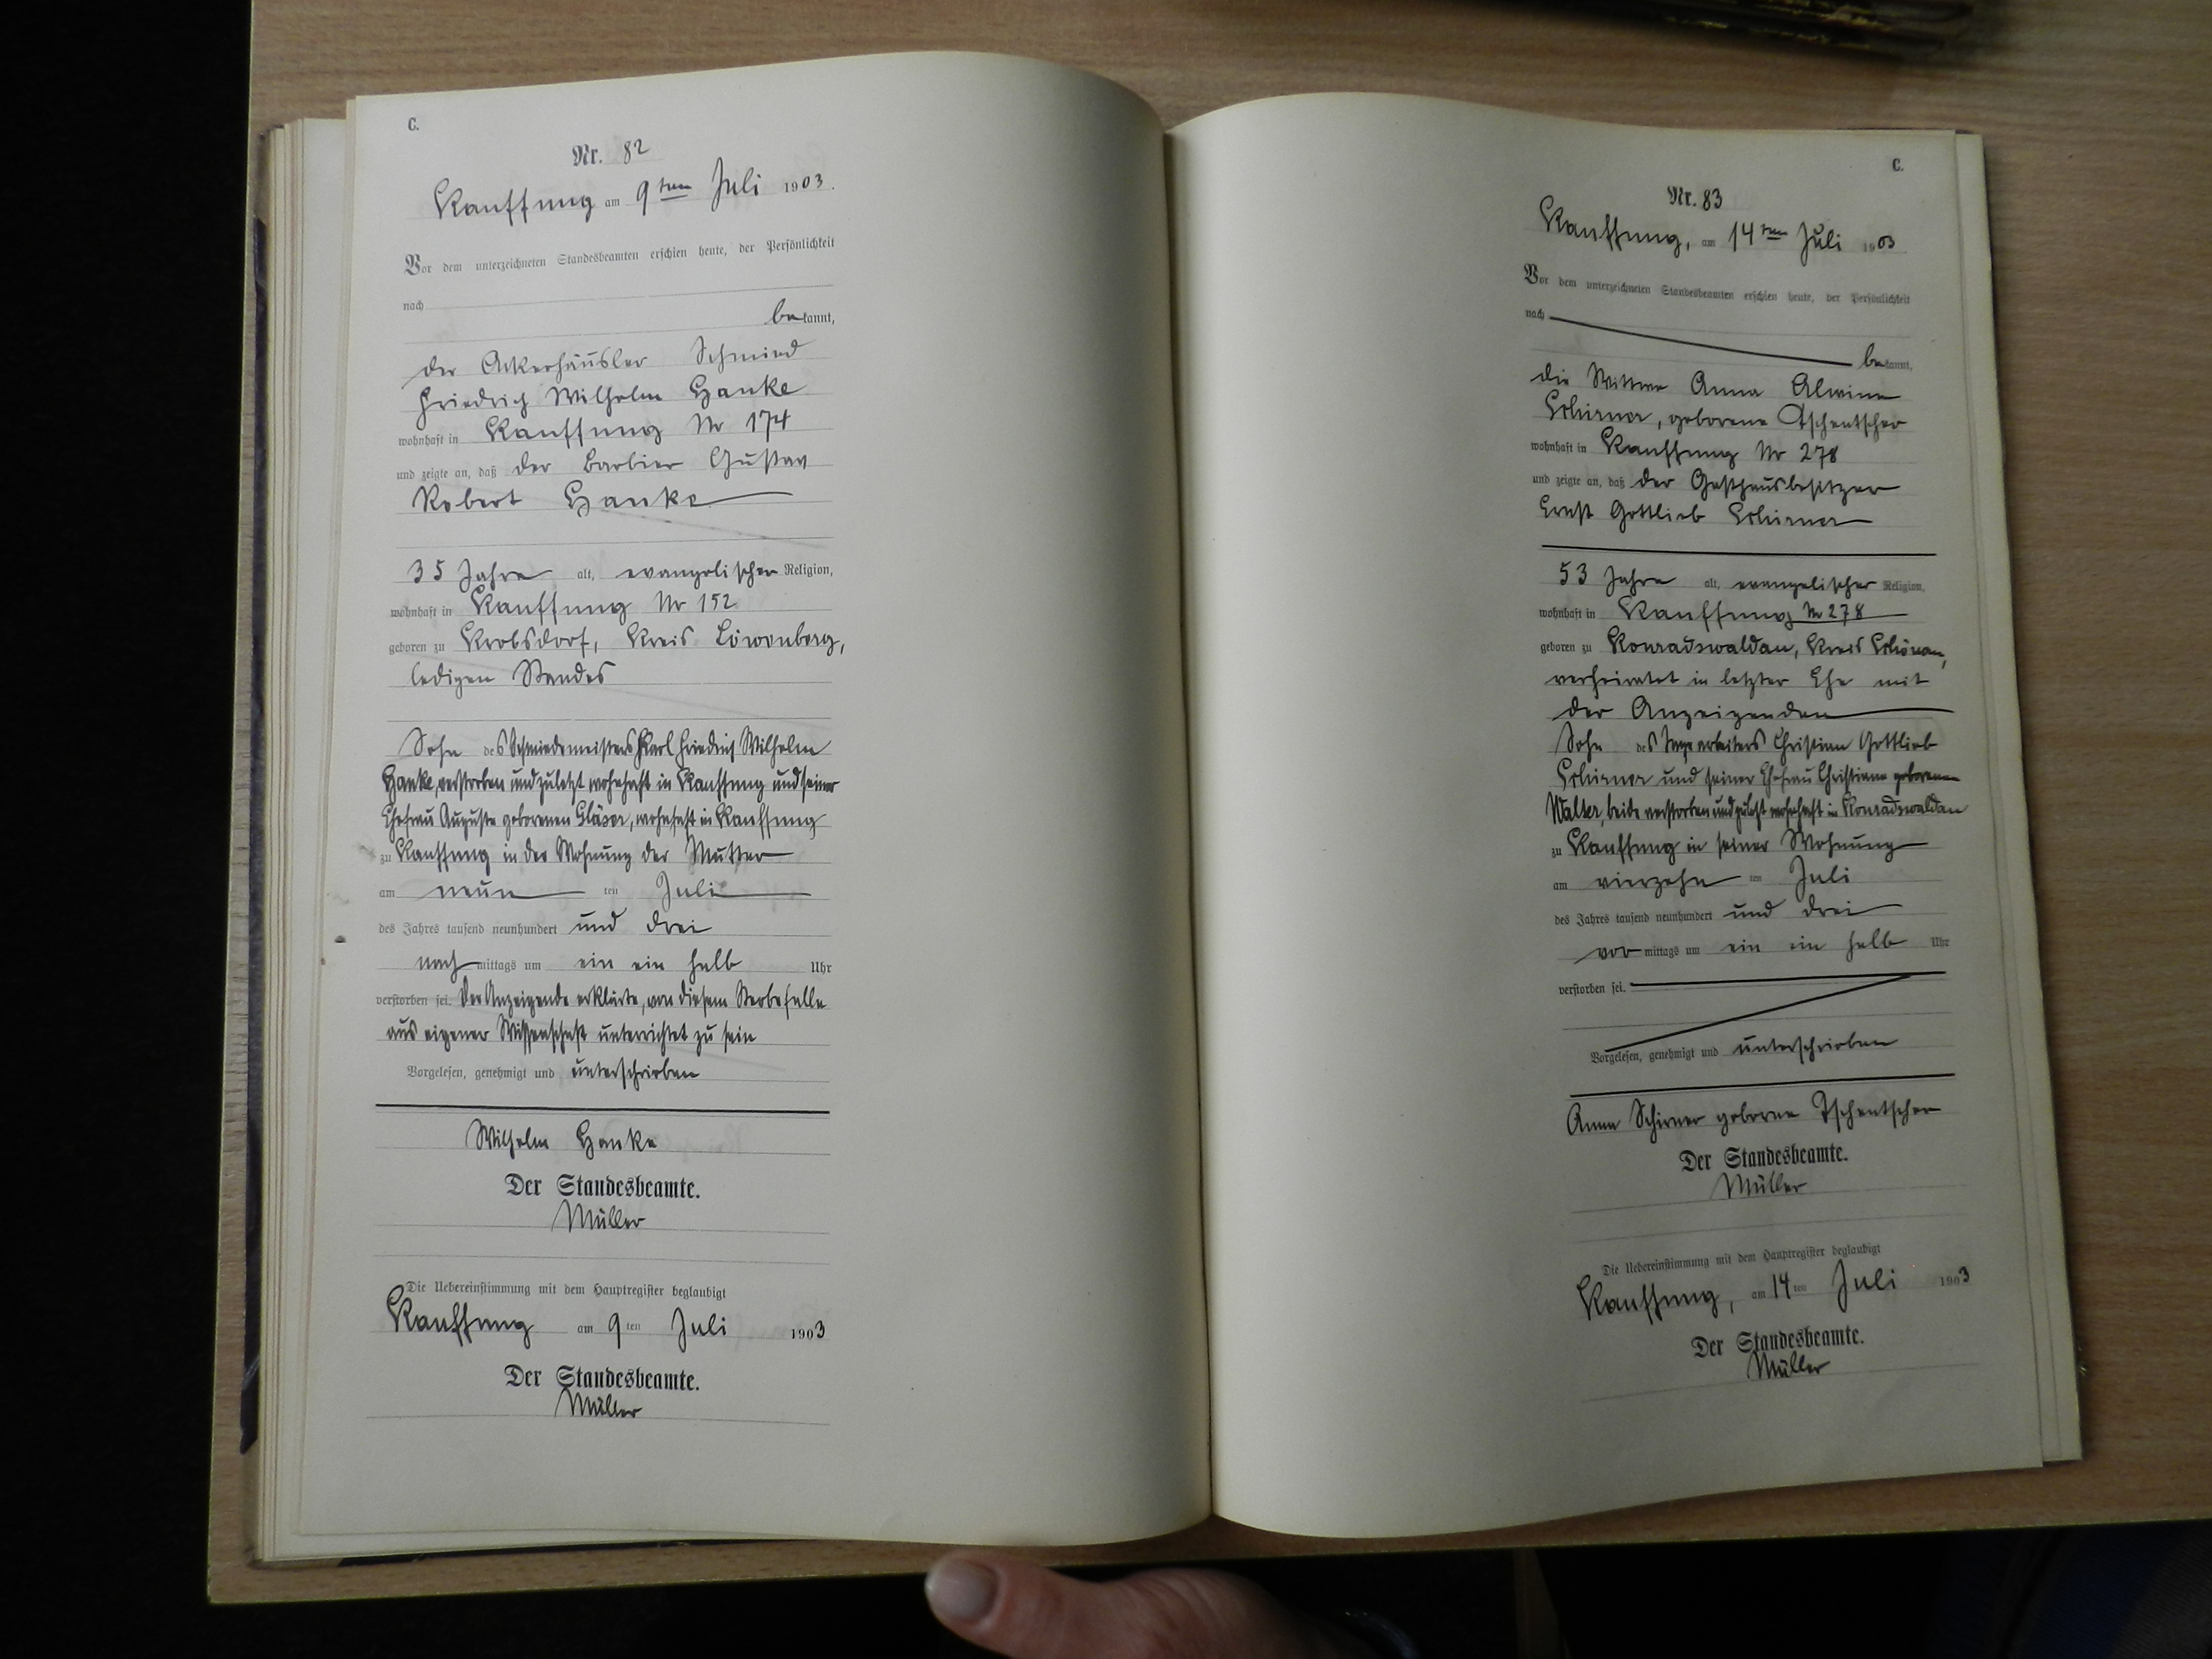 C.
Nr. 82
Kauffung am 9ten Juli 1903.
Vor dem unterzeichneten Standesbeamten erschien heute, der Persönlichkeit
nach
bekannt,
der Ackerhäusler Schmied
Friedrich Wilhelm Hanke
wohnhaft in Kauffung Nr 174
und zeigte an, daß der Barbier Gustav
Robert Hanke
35 Jahre alt, evangelischer Religion,
wohnhaft in Kauffung Nr 152
geboren zu Krobsdorf, Kreis Löwenberg,
ledigen Standes
Sohn des Schmiedemeisters Karl Friedrich Wilhelm
Hanke, verstorben und zuletzt wohnhaft in Kauffung und seiner
Ehefrau Auguste geborenen Gläser, wohnhaft in Kauffung
zu Kauffung in der Wohnung der Mutter
am neun ten Juli
des Jahres tausend neunhundert und drei
nach mittags um ein ein halb Uhr
verstorben sei. Der Anzeigende erklärte, von diesem Sterbefalle
aus eigener Wissenschaft unterrichtet zu sein
Vorgelesen, genehmigt und unterschrieben
Wilhelm Hanke
Der Standesbeamte.
Müller
Die Uebereinstimmung mit dem Hauptregister beglaubigt
Kauffung am 9ten Juli 1903
Der Standesbeamte.
Müller
C.
Nr. 83
Kauffung, am 14ten Juli 1903
Vor dem unterzeichneten Standesbeamten erschien heute, der Persönlichkeit
nach
bekannt,
die Wittwe Anna Alwine
Schirner, geborene Tschentscher
wohnhaft in Kauffung Nr 278
und zeigte an, daß der Gasthausbesitzer
Ernst Gottlieb Schirner
53 Jahre alt, evangelischer Religion,
wohnhaft in Kauffung Nr 278
geboren zu Konradswaldau, Kreis Schönau,
verheiratet in letzter Ehe mit
der Anzeigenden
Sohn des Christian Gottlieb
Schirner und seiner Ehefrau Christiane geborenen
Walter, beide verstorben und zuletzt wohnhaft in Konradswaldau
zu Kauffung in seiner Wohnung
am vierzehn ten Juli
des Jahres tausend neunhundert und drei
vor mittags um ein ein halb Uhr
verstorben sei.
Vorgelesen, genehmigt und unterschrieben
Anna Schirner geborne Tschentscher
Der Standesbeamte.
Müller
Die Uebereinstimmung mit dem Hauptregister beglaubigt
Kauffung, am 14ten Juli 1903
Der Standesbeamte.
Müller